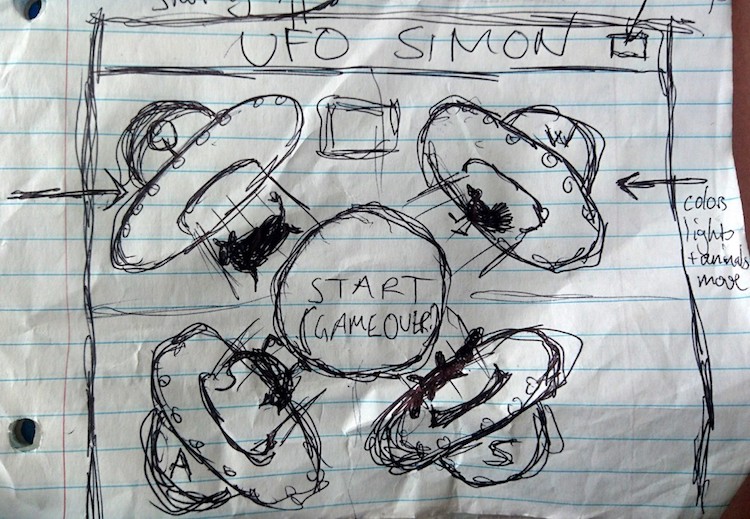 UFO SIMON
Q
W
colors
lights
+ animals
move
START
(GAME OVER)
A
S